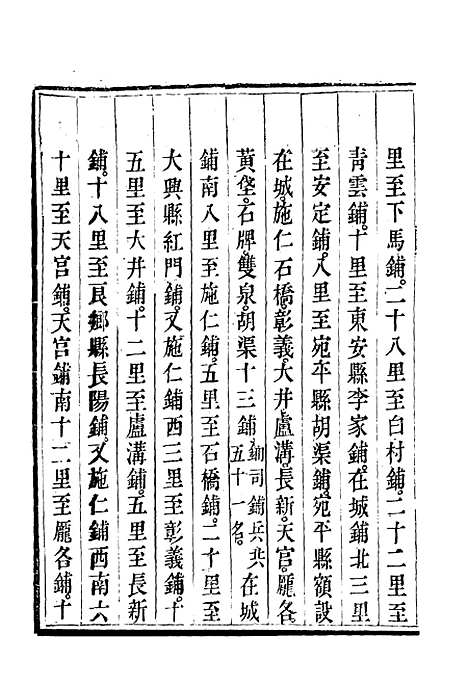 里至下馬鋪。二十八里至白村鋪。二十二里至
青雲鋪。十里至東安縣李家鋪。在城鋪北三里
至安定鋪。八里至宛平縣胡渠鋪。宛平縣額設
在城。施仁石橋。彰義。大井盧溝。長新。天官。龎各
黃垡。石牌。雙泉。胡渠十三鋪。鋪司鋪兵共五十一名。在城
鋪南八里至施仁鋪。五里至石橋鋪。二十里至
大興縣紅門鋪。又施仁鋪西三里至彰義鋪。十
五里至大井鋪。十二里至盧溝鋪。五里至長新
鋪。十八里至良鄉縣長陽鋪。又施仁鋪西南六
十里至天宮鋪。天宮鋪南十二里至龎各鋪。十